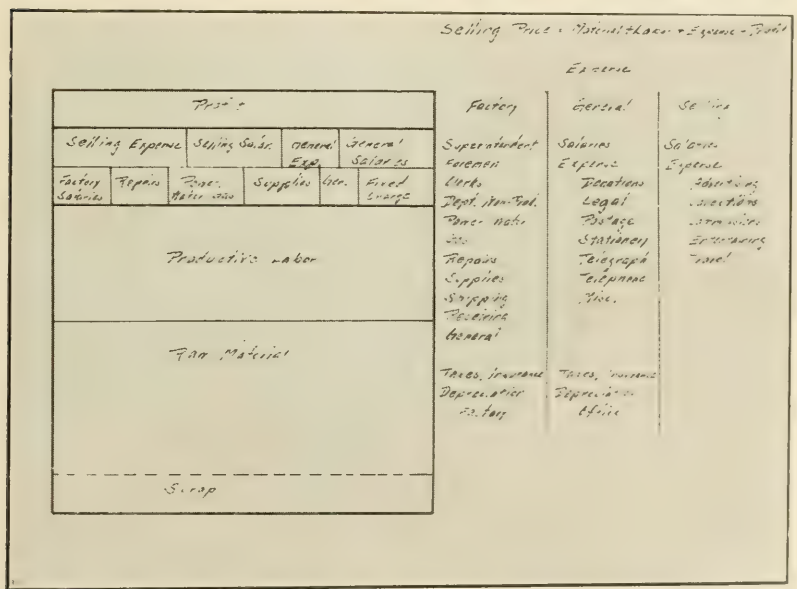 Selling Price = Material + Labor + Expense + Profit
Expense
Profit
Selling Expense Selling Salar. General Exp. General Salaries
Factory Salaries Repairs Power Water Gas Supplies Gen. Fixed Charge
Productive Labor
Raw Material
Scrap
Factory
Superintendent
Foremen
Clerks
Dept. Non-Prod.
Power Water
Gas
Repairs
Supplies
Shipping
Receiving
General
Taxes, insurance
Depreciation
Factory
General
Salaries
Expense
Donations
Legal
Postage
Stationery
Telegraph
Telephone
Misc.
Taxes, insurance
Depreciation
Office
Selling
Salaries
Expense
Advertising
Commissions
Entertaining
Travel